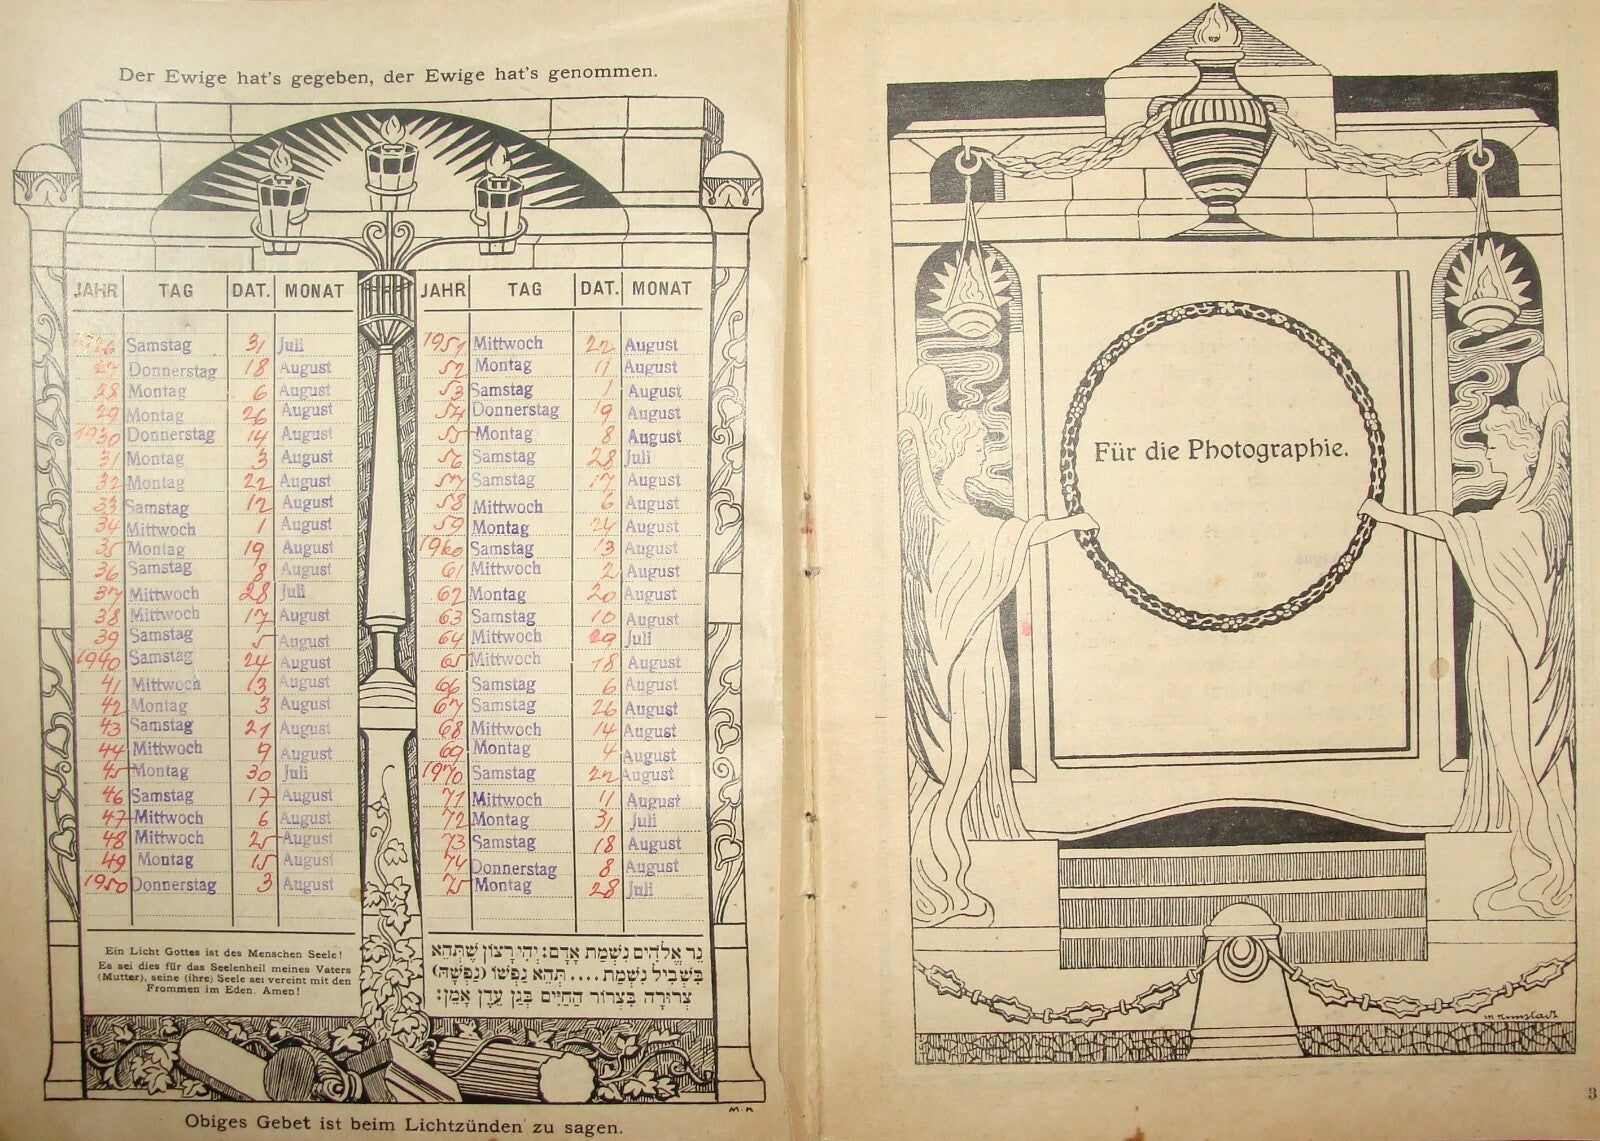 Der Ewige hat's gegeben, der Ewige hat's genommen.
JAHR TAG DAT. MONAT
1926 Samstag 31 Juli
27 Donnerstag 18 August
28 Montag 6 August
29 Montag 26 August
1930 Donnerstag 14 August
31 Montag 3 August
32 Montag 22 August
33 Samstag 12 August
34 Mittwoch 1 August
35 Montag 19 August
36 Samstag 8 August
37 Mittwoch 28 Juli
38 Mittwoch 17 August
39 Samstag 5 August
1940 Samstag 24 August
41 Mittwoch 13 August
42 Montag 3 August
43 Samstag 21 August
44 Mittwoch 9 August
45 Montag 30 Juli
46 Samstag 17 August
47 Mittwoch 6 August
48 Mittwoch 25 August
49 Montag 15 August
1950 Donnerstag 3 August
JAHR TAG DAT. MONAT
1951 Mittwoch 22 August
52 Montag 11 August
53 Samstag 1 August
54 Donnerstag 19 August
55 Montag 8 August
56 Samstag 28 Juli
57 Samstag 17 August
58 Mittwoch 6 August
59 Montag 24 August
1960 Samstag 13 August
61 Mittwoch 2 August
62 Montag 20 August
63 Samstag 10 August
64 Mittwoch 29 Juli
65 Mittwoch 18 August
66 Samstag 6 August
67 Samstag 26 August
68 Mittwoch 14 August
69 Montag 4 August
1970 Samstag 22 August
71 Mittwoch 11 August
72 Montag 31 Juli
73 Samstag 18 August
74 Donnerstag 8 August
75 Montag 28 Juli
Ein Licht Gottes ist des Menschen Seele!
Es sei dies für das Seelenheil meines Vaters
(Mutter), seine (ihre) Seele sei vereint mit den
Frommen im Eden. Amen!
נֵר אֱלֹהִים נִשְׁמַת אָדָם: יְהִי רָצוֹן שֶׁתְּהֵא
בִּשְׁבִיל נִשְׁמַת .... תְּהֵא נַפְשׁוֹ (נַפְשָׁהּ)
צְרוּרָה בִּצְרוֹר הַחַיִּים בְּגַן עֵדֶן אָמֵן:
M. K
Obiges Gebet ist beim Lichtzünden zu sagen.
Für die Photographie.
M Kunstadt
3